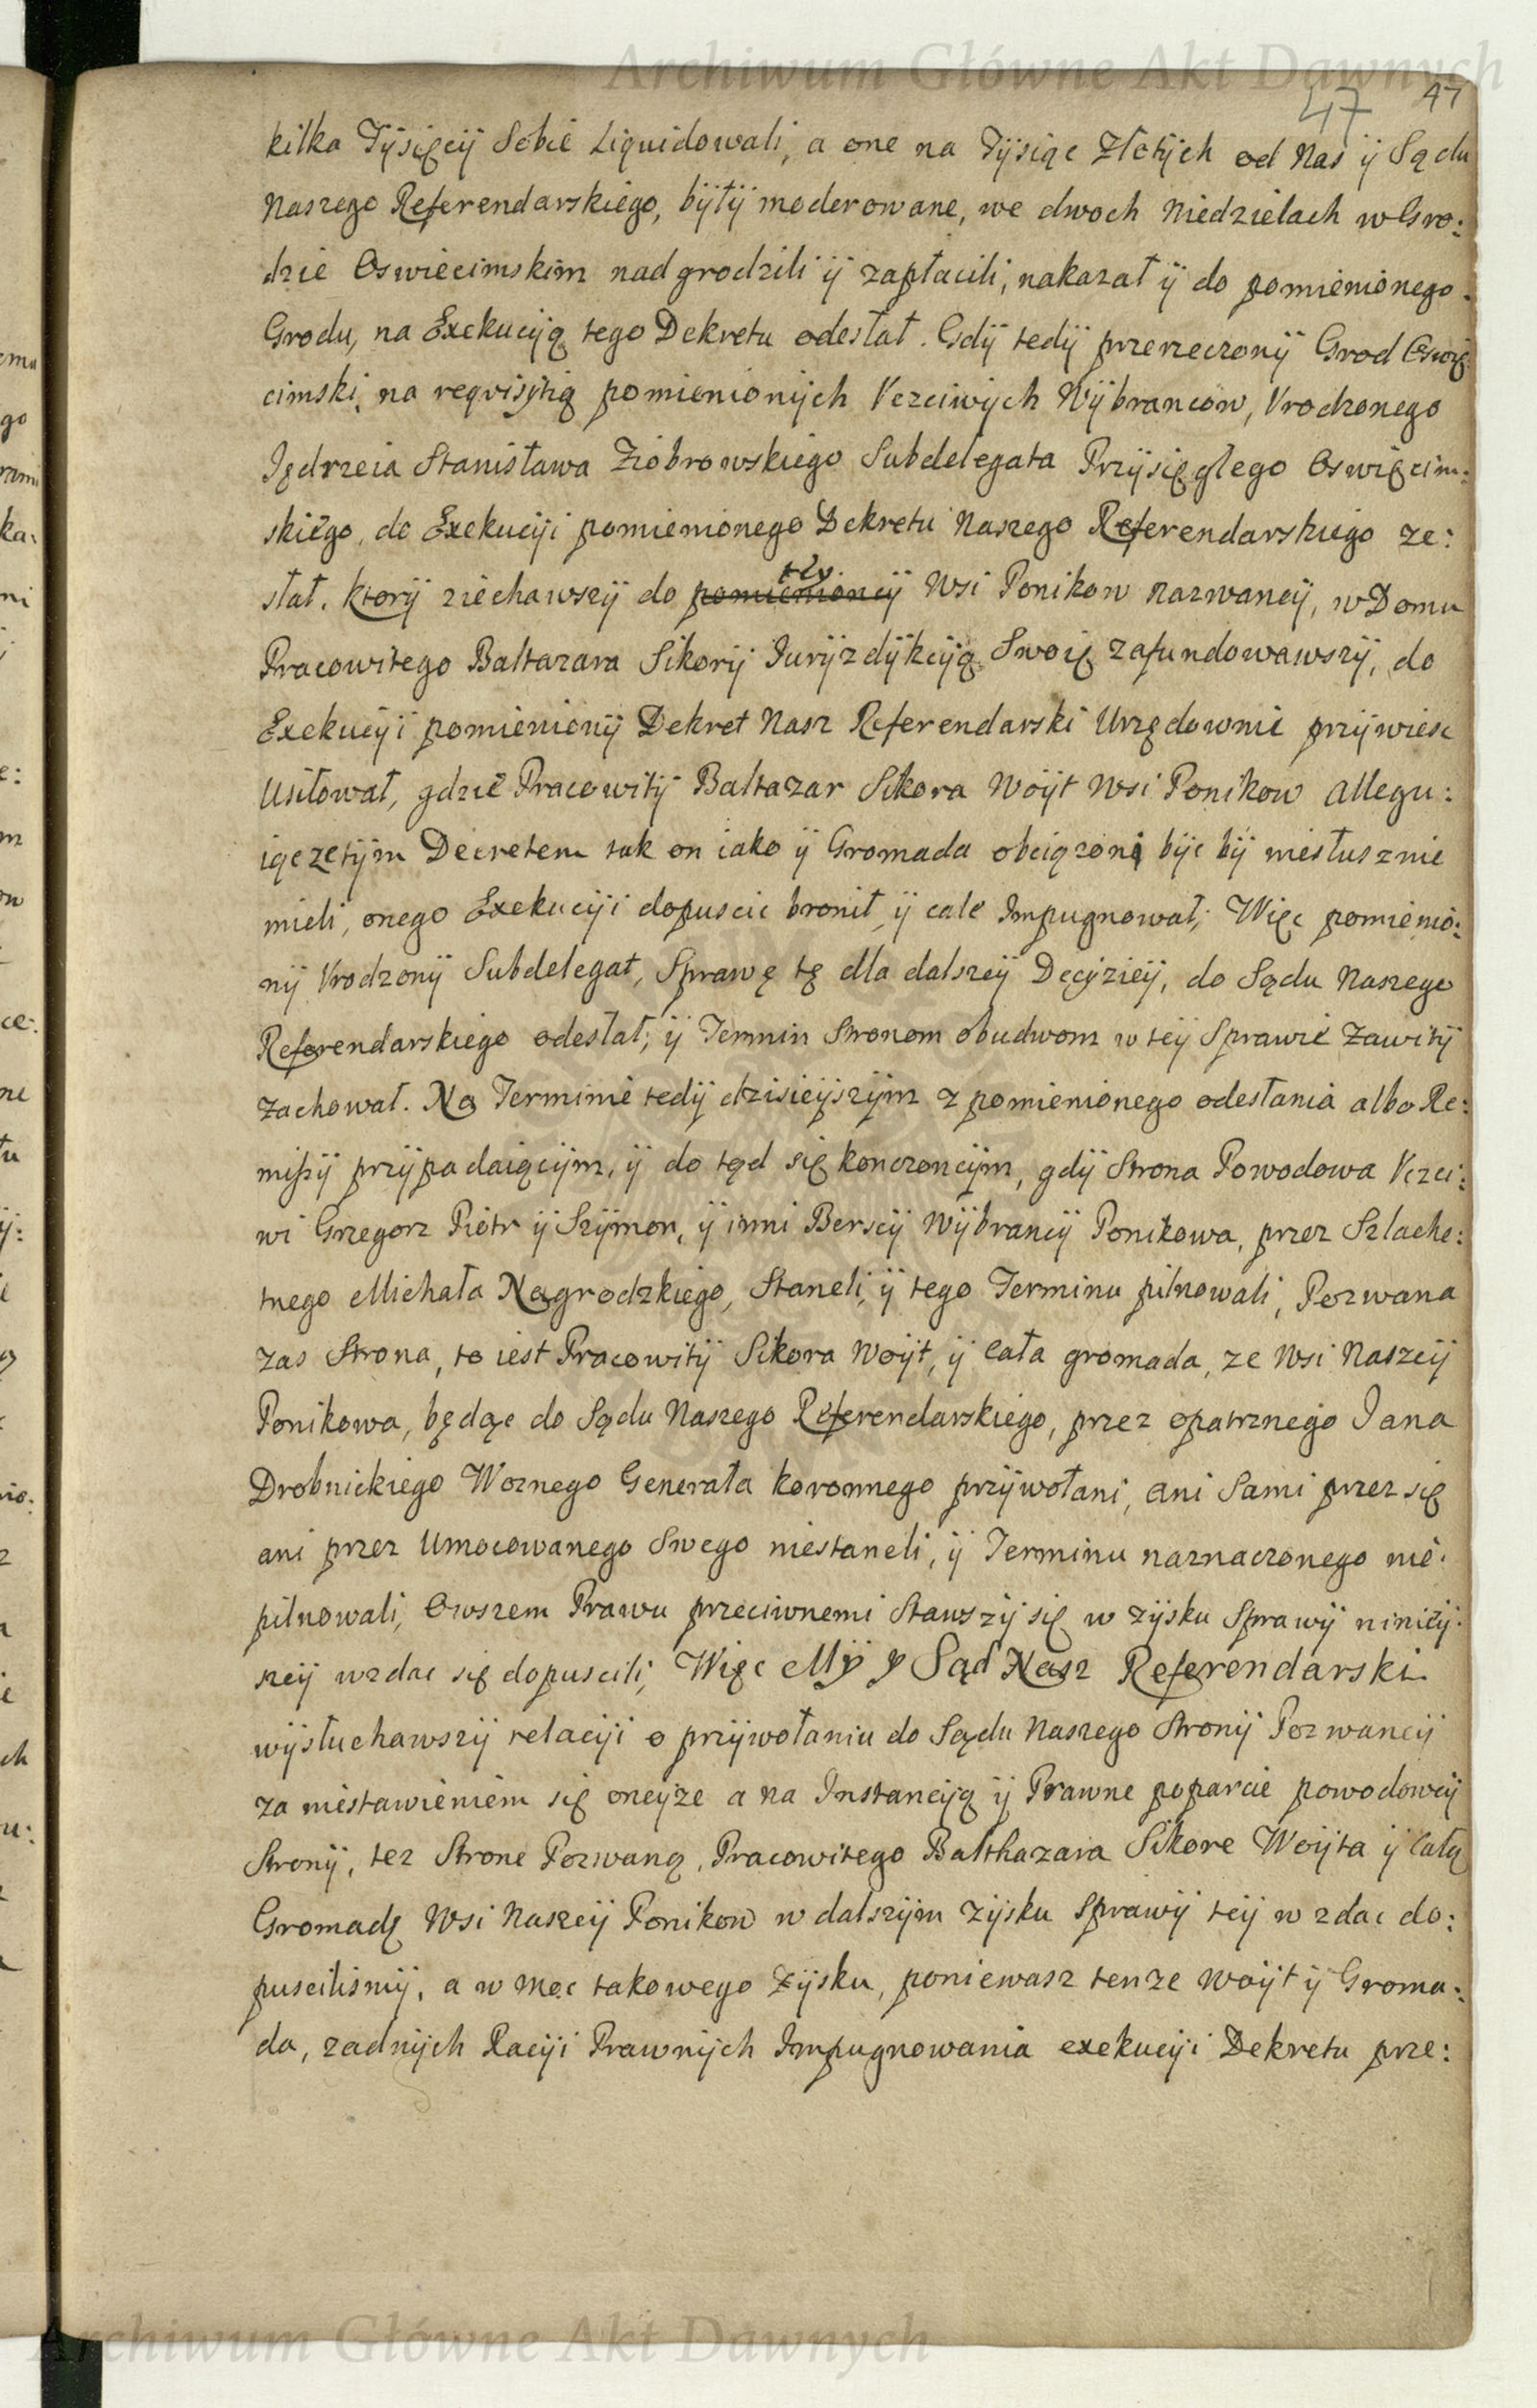 Archiwum Główne Akt Dawnych
47 47
kilka Tÿsięcÿ Sobie Liquidowali, a one na Tÿsiąc Złotÿch od Nas ÿ Sądu
Naszego Referendarskiego, bÿłÿ moderowane, we dwoch Niedzielach w Gro:
dzie Oswiecimskim nadgrodzili ÿ zapłacili, nakazał ÿ do pomienionego
Grodu, na Exekucÿą tego Dekretu odesłał. Gdÿ tedÿ przerzeczonÿ Grod Oswię
cimski, na reqvisÿtią pomienionÿch Vczciwÿch Wÿbrancow, Vrodzonego
Jędrzeia Stanisława Ziobrowskiego Subdelegata Przÿsięgłego Oswięcim:
skiego, do Exekucÿi pomienionego Dekretu Naszego Referendarskiego ze:
słał. ktorÿ ziechawszÿ do pomienionej teÿ Wsi Ponikow nazwaneÿ, w Domu
Pracowitego Baltazara Sikorÿ Jurÿzdÿkcÿą Swoię zafundowawszÿ, do
Exekucÿi pomienionÿ Dekret Nasz Referendarski Urzędownie przÿwiesc
Usiłował, gdzie Pracowitÿ Baltazar Sikora Woÿt Wsi Ponikow Allegu:
iąc ze tÿm Decretem tak on iako ÿ Gromada obciązoni bÿc bÿ niesłusznie
mieli, onego Exekucÿi dopuscic bronił, ÿ cale Impugnował; Więc pomienio:
nÿ Vrodzonÿ Subdelegat, Sprawę tę dla dalszeÿ Decÿzieÿ, do Sądu Naszego
Referendarskiego odesłał; ÿ Termin Stronom obudwom w teÿ Sprawie Zawitÿ
zachował. Na Terminie tedÿ dzisieÿszÿm z pomienionego odesłania albo Re:
mißÿ przÿpadaiącÿm, ÿ do tąd się konczoncÿm, gdÿ Strona Powodowa Vczci:
wi Grzegorz Piotr ÿ Szÿmon, ÿ inni Berscÿ Wÿbrancÿ Ponikowa, przez Szlache:
tnego Michała Nagrodzkiego, Staneli, ÿ tego Terminu pilnowali, Pozwana
zas Strona, to iest Pracowitÿ Sikora Woÿt, ÿ Cała gromada, ze Wsi Naszeÿ
Ponikowa, będąc do Sądu Naszego Referendarskiego, przez opatrznego Jana
Drobnickiego Woznego Generała koronnego przÿwołani, ani Sami przez się
ani przez Umocowanego Swego niestaneli, ÿ Terminu naznaczonego nie
pilnowali, Owszem Prawu przeciwnemi Stawszÿ się w zÿsku Sprawÿ ninieÿ:
szeÿ wzdac się dopuscili, Więc Mÿ y Sąd Nasz Referendarski
wÿsłuchawszÿ relacÿi o przÿwołaniu do Sądu Naszego Stronÿ Pozwaneÿ
za niestawieniem się oneÿze a na Instancÿą ÿ Prawne poparcie powodoweÿ
Stronÿ, tez Strone Pozwaną, Pracowitego Balthazara Sikore Woÿta ÿ Całą
Gromadę Wsi Naszeÿ Ponikow w dalszÿm zÿsku Sprawÿ teÿ wzdac do:
puscilismÿ, a w moc takowego Zÿsku, poniewasz tenze Woÿt ÿ Groma:
da, zadnÿch Racÿi Prawnÿch Impugnowania exekucÿi Dekretu prze:
Archiwum Główne Akt Dawnych